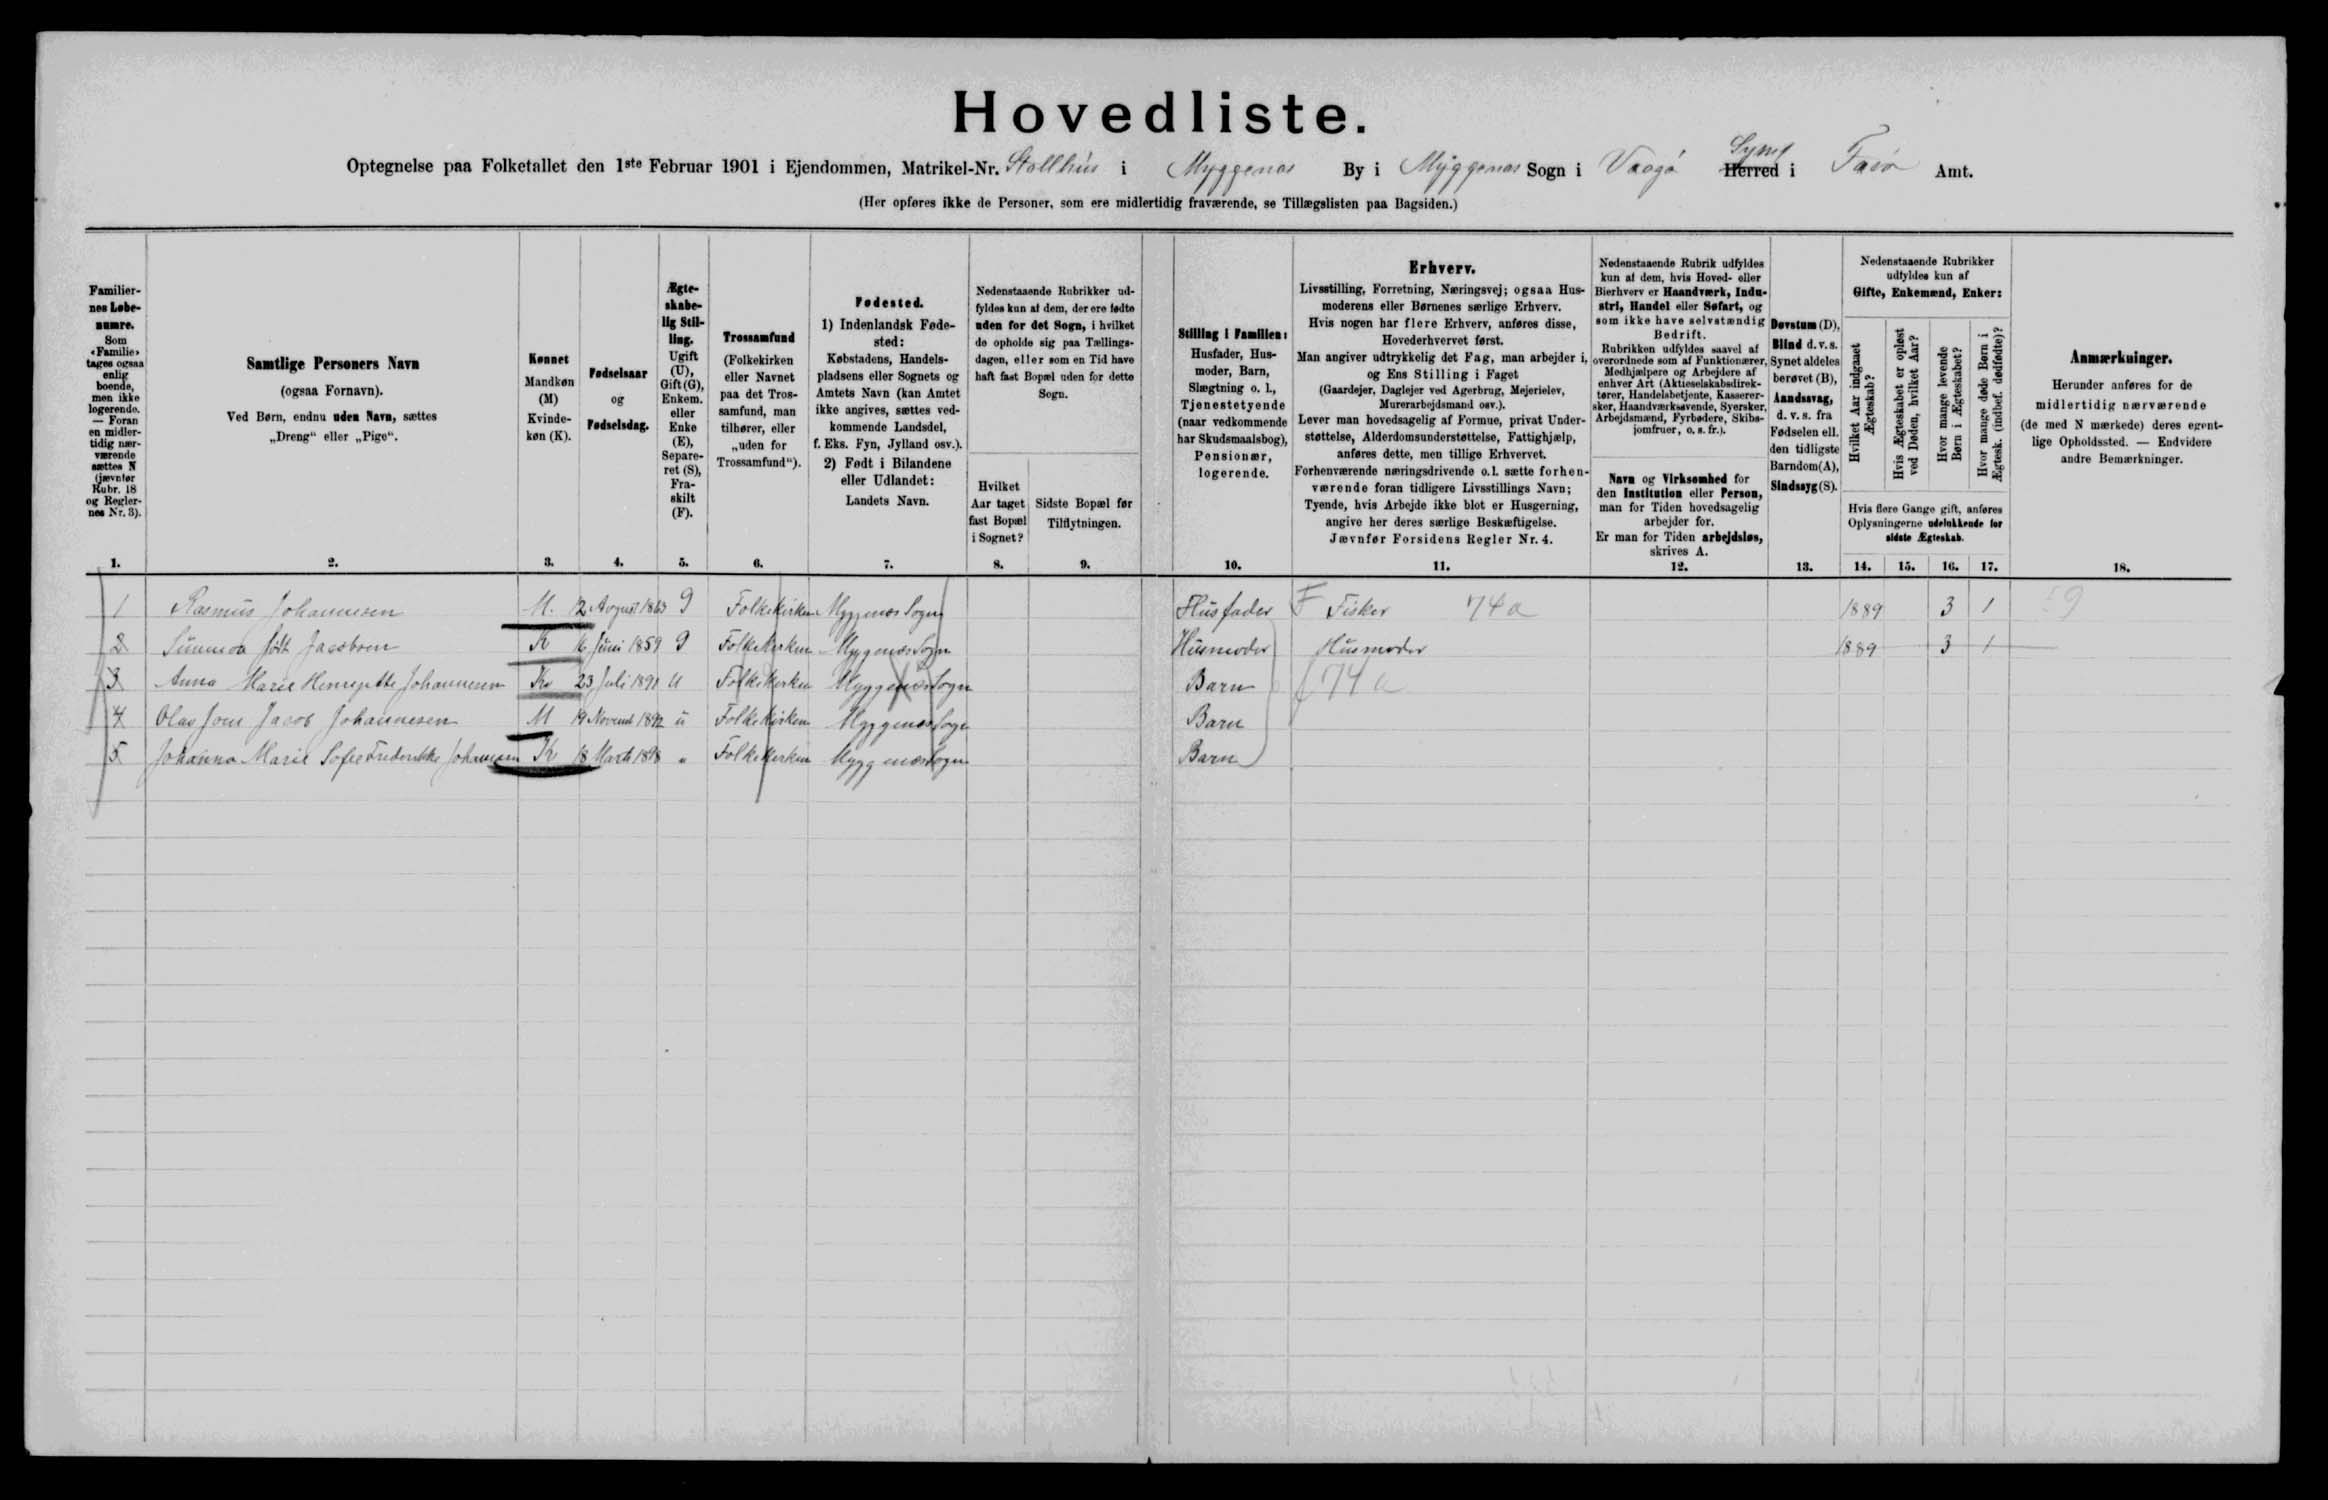 Hovedliste.
Optegnelse paa Folketallet den 1ste Februar 1901 i Ejendommen, Matrikel-Nr. Stollhús i Myggenæs By i Myggenæs Sogn i Vaagø Herred Syssel i Færø Amt.
(Her opføres ikke de Personer, som ere midlertidig fraværende, se Tillægslisten paa Bagsiden.)
Familiernes Løbenumre.
Som «Familie» tages ogsaa enlig boende, men ikke logerende. — Foran en midlertidig nærværende sættes N (jævnfør Rubr. 18 og Reglernes Nr. 3).
1.
Samtlige Personers Navn
(ogsaa Fornavn).
Ved Børn, endnu uden Navn, sættes
„Dreng“ eller „Pige“.
2.
Kønnet
Mandkøn (M)
Kvindekøn (K).
3.
Fødselsaar
og
Fødselsdag.
4.
Ægteskabelig Stilling.
Ugift (U), Gift (G), Enkem. eller Enke (E), Separeret (S), Fraskilt (F).
5.
Trossamfund
(Folkekirken eller Navnet paa det Trossamfund, man tilhører, eller „uden for Trossamfund“).
6.
Fødested.
1) Indenlandsk Fødested:
Købstadens, Handelspladsens eller Sognets og Amtets Navn (kan Amtet ikke angives, sættes vedkommende Landsdel, f. Eks. Fyn, Jylland osv.).
2) Født i Bilandene eller Udlandet:
Landets Navn.
7.
Nedenstaaende Rubrikker udfyldes kun af dem, der ere fødte uden for det Sogn, i hvilket de opholde sig paa Tællingsdagen, eller som en Tid have haft fast Bopæl uden for dette Sogn.
Hvilket Aar taget fast Bopæl i Sognet?
8.
Sidste Bopæl før Tilflytningen.
9.
Stilling i Familien:
Husfader, Husmoder, Barn, Slægtning o. l., Tjenestetyende (naar vedkommende har Skudsmaalsbog), Pensionær, logerende.
10.
Erhverv.
Livsstilling, Forretning, Næringsvej; ogsaa Husmoderens eller Børnenes særlige Erhverv.
Hvis nogen har flere Erhverv, anføres disse, Hovederhvervet først.
Man angiver udtrykkelig det Fag, man arbejder i, og Ens Stilling i Faget
(Gaardejer, Daglejer ved Agerbrug, Mejerielev, Murerarbejdsmand osv.).
Lever man hovedsagelig af Formue, privat Understøttelse, Alderdomsunderstøttelse, Fattighjælp, anføres dette, men tillige Erhvervet.
Forhenværende næringsdrivende o. l. sætte forhenværende foran tidligere Livsstillings Navn;
Tyende, hvis Arbejde ikke blot er Husgerning, angive her deres særlige Beskæftigelse.
Jævnfør Forsidens Regler Nr. 4.
11.
Nedenstaaende Rubrik udfyldes kun af dem, hvis Hoved- eller Bierhverv er Haandværk, Industri, Handel eller Søfart, og som ikke have selvstændig Bedrift.
Rubrikken udfyldes saavel af overordnede som af Funktionærer, Medhjælpere og Arbejdere af enhver Art (Aktieselskabsdirektører, Handelsbetjente, Kasserersker, Haandværksvende, Syersker, Arbejdsmænd, Fyrbødere, Skibsjomfruer, o. s. fr.).
Navn og Virksomhed for den Institution eller Person, man for Tiden hovedsagelig arbejder for.
Er man for Tiden arbejdsløs, skrives A.
12.
Døvstum (D), Blind d. v. s. Synet aldeles berøvet (B), Aandssvag, d. v. s. fra Fødselen ell. den tidligste Barndom (A), Sindssyg (S).
13.
Nedenstaaende Rubrikker udfyldes kun af
Gifte, Enkemænd, Enker:
Hvilket Aar indgaaet Ægteskab?
Hvis Ægteskabet er opløst ved Døden, hvilket Aar?
Hvor mange levende Børn i Ægteskabet?
Hvor mange døde Børn i Ægtesk. (indbef. dødfødte)?
Hvis flere Gange gift, anføres Oplysningerne udelukkende for sidste Ægteskab.
14. 15. 16. 17.
Anmærkninger.
Herunder anføres for de midlertidig nærværende (de med N mærkede) deres egentlige Opholdssted. — Endvidere andre Bemærkninger.
18.
1 Rasmus Johannesen M. 12 Avgust 1863 G Folkekirken Myggenæs Sogn Husfader F Fisker 74 a 1889 3 1 59
2 Sunneva født Jacobsen K 16 Juni 1859 G Folkekirken Myggenæs Sogn Husmoder Husmoder 1889 3 1
3 Anna Marie Henrejette Johannesen K 23 Juli 1891 U Folkekirken Myggenæs Sogn Barn f 74 a
4 Olav Jone Jacob Johannesen M 19 Novemb 1892 u Folkekirken Myggenæs Sogn Barn
5 Johanna Marie Sofie Frederikke Johannesen K 18 Marts 1898 „ Folkekirken Myggenæs Sogn Barn